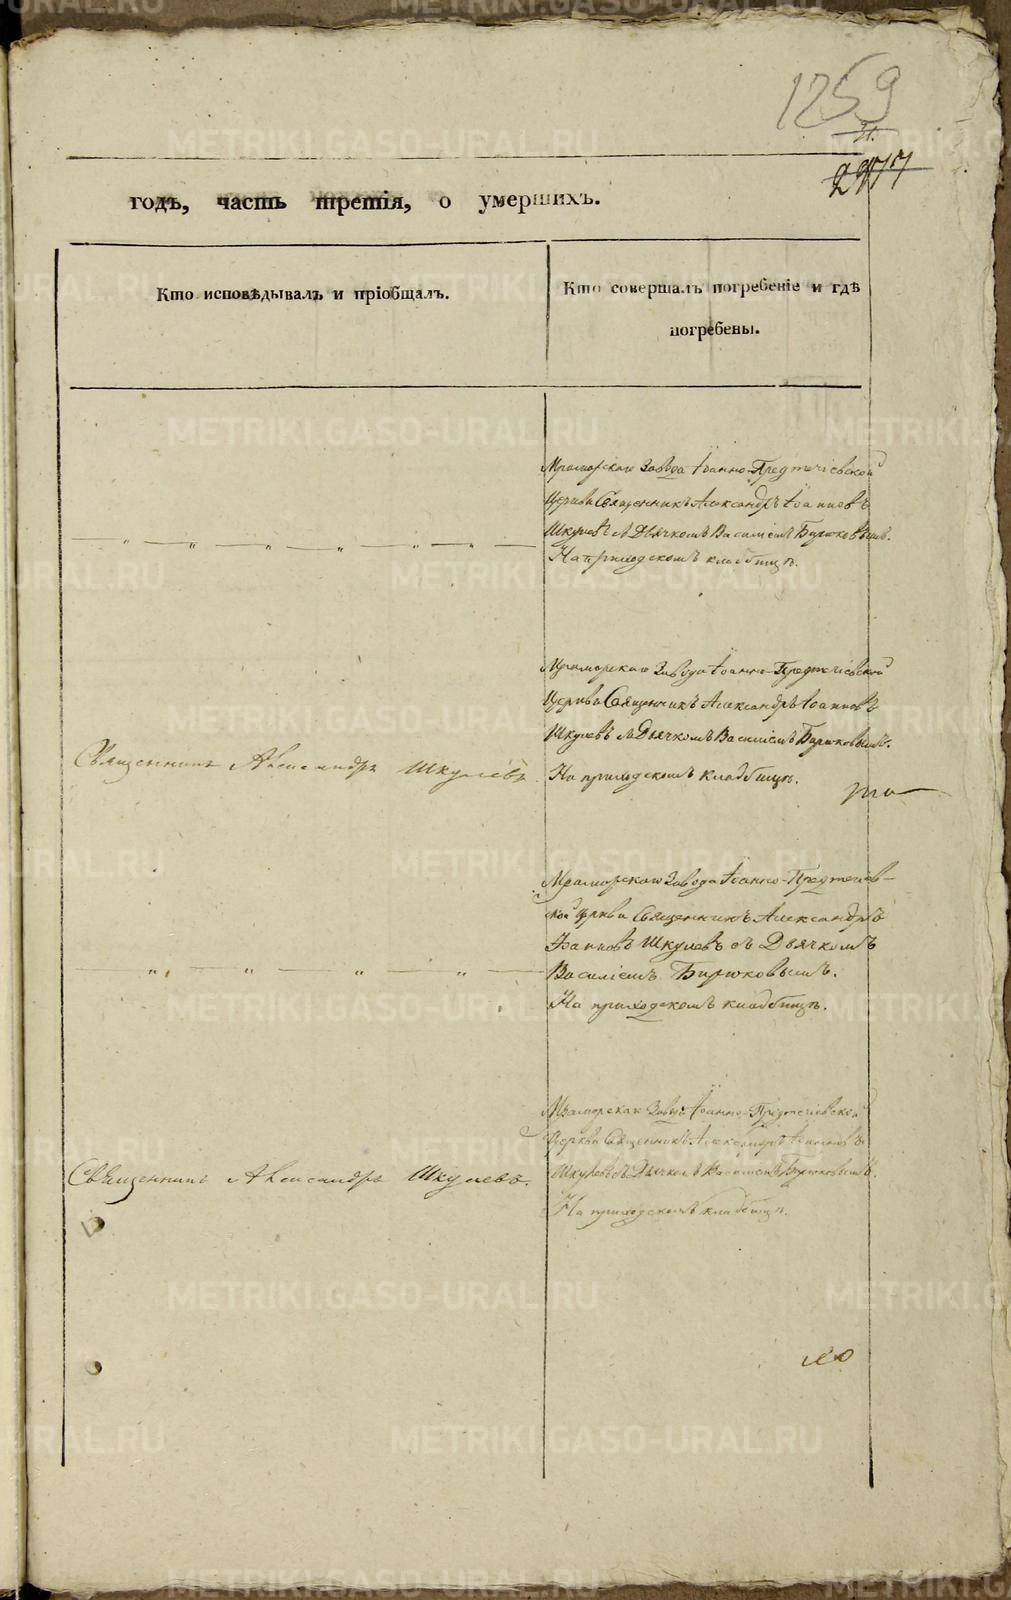 1259
31.
2977
годъ, часть третія, о умершихъ.
Кто исповѣдывалъ и пріобщалъ.
Кто совершалъ погребеніе и гдѣ
погребены.
Мраморскаго Завода Іоанно-Предтечіевской
Церкви Священникъ Александръ Іоанновъ
Шкулевъ съ Дьячкомъ Василіемъ Бирюковымъ.
На приходскомъ кладбищѣ.
Священникъ Александръ Шкулевъ.
Мраморскаго Завода Іоанно-Предтечіевской
Церкви Священникъ Александръ Іоанновъ
Шкулевъ съ Дьячкомъ Василіемъ Бирюковымъ.
На приходскомъ кладбищѣ.
Мраморскаго Завода Іоанно-Предтечіев-
ской Церкви Священникъ Александръ
Іоанновъ Шкулевъ съ Дьячкомъ
Василіемъ Бирюковымъ.
На приходскомъ кладбищѣ.
Священникъ Александръ Шкулевъ.
Мраморскаго Завода Іоанно-Предтечіевской
Церкви Священникъ Александръ Іоанновъ
Шкулевъ съ Дьячкомъ Василіемъ Бирюковымъ.
На приходскомъ кладбищѣ.
METRIKI.GASO-URAL.RU